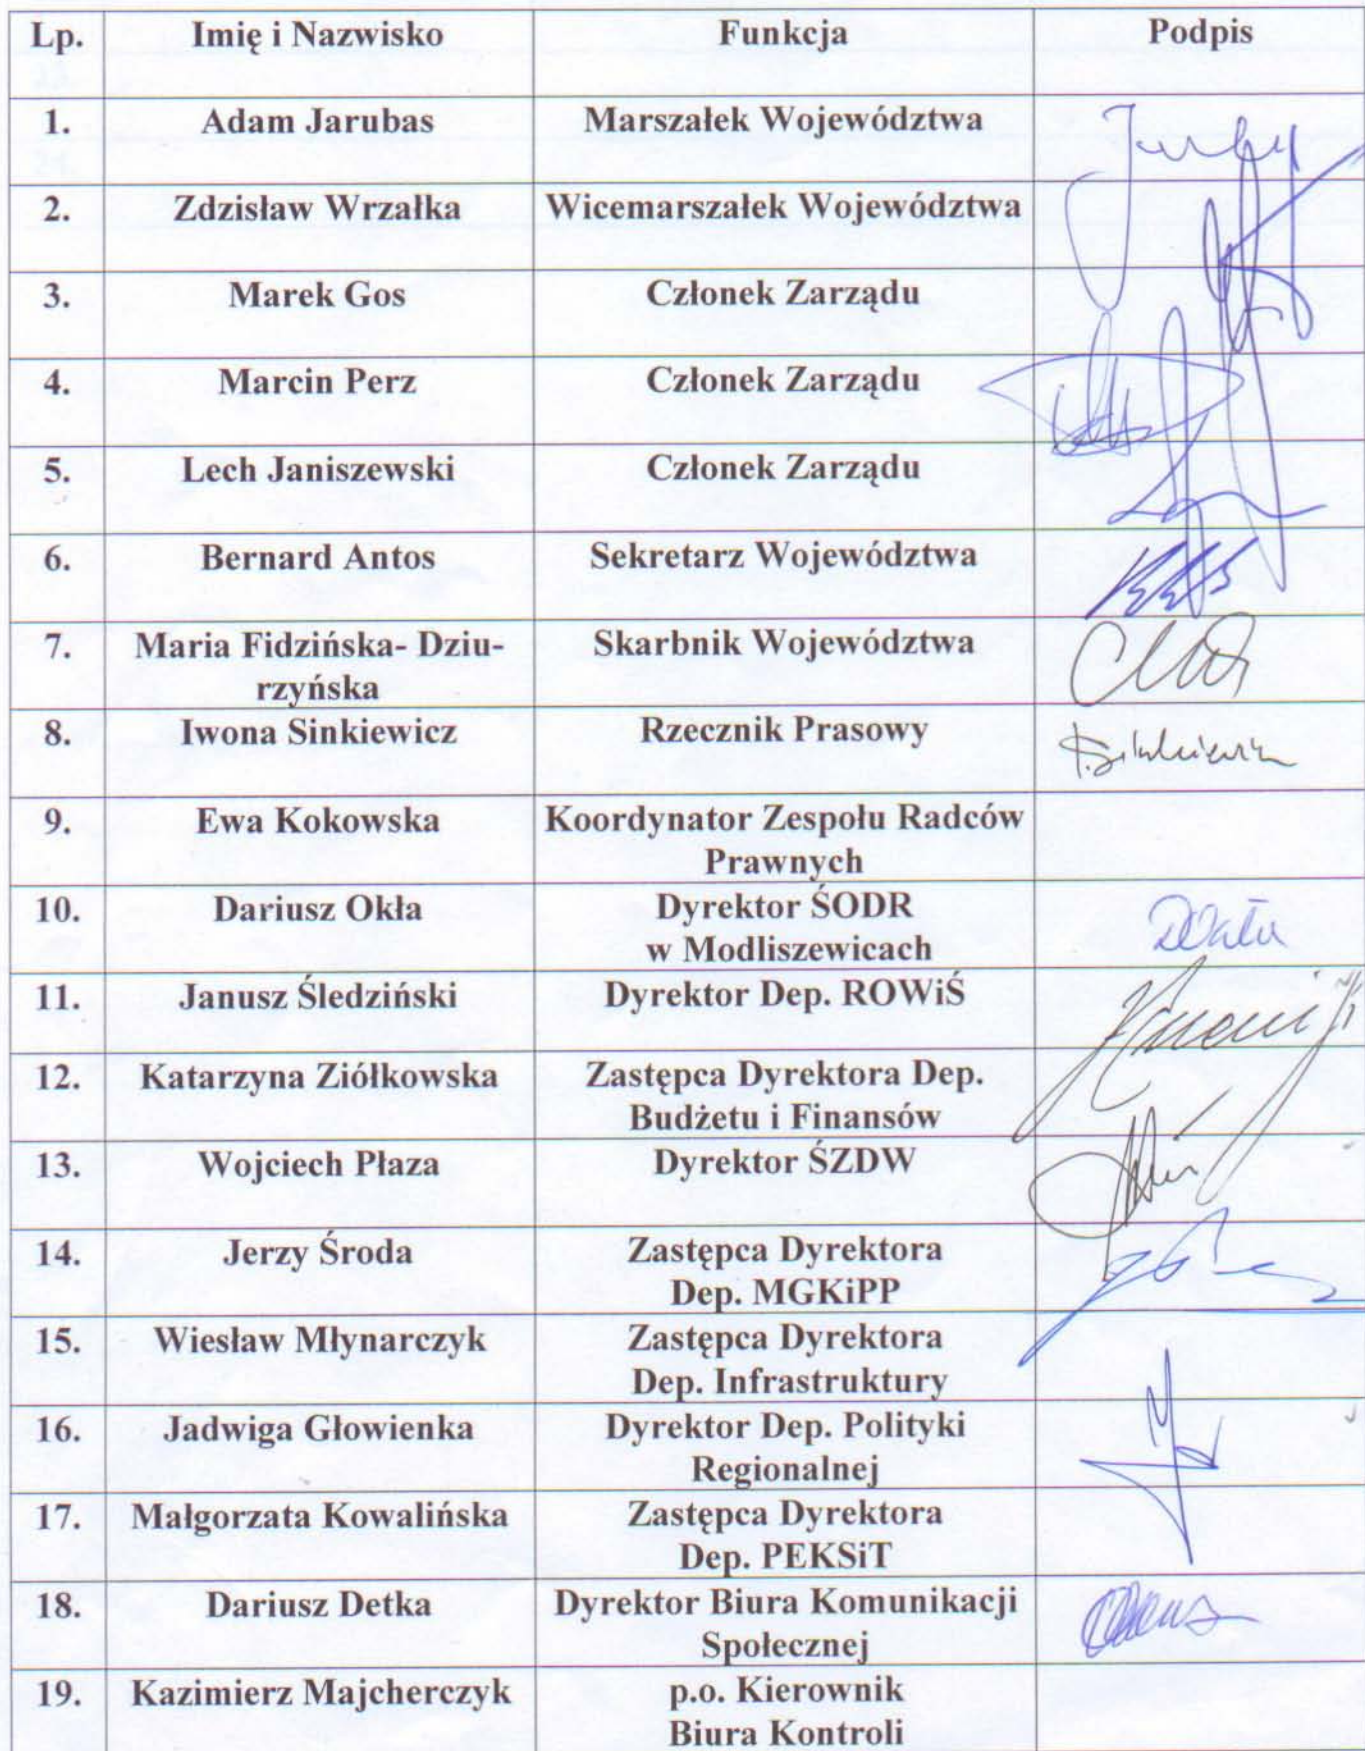 Lp. Imię i Nazwisko Funkcja Podpis
1. Adam Jarubas Marszałek Województwa
2. Zdzisław Wrzałka Wicemarszałek Województwa
3. Marek Gos Członek Zarządu
4. Marcin Perz Członek Zarządu
5. Lech Janiszewski Członek Zarządu
6. Bernard Antos Sekretarz Województwa
7. Maria Fidzińska- Dziu- Skarbnik Województwa
rzyńska
8. Iwona Sinkiewicz Rzecznik Prasowy
9. Ewa Kokowska Koordynator Zespołu Radców
Prawnych
10. Dariusz Okła Dyrektor ŚODR
w Modliszewicach
11. Janusz Śledziński Dyrektor Dep. ROWiŚ
12. Katarzyna Ziółkowska Zastępca Dyrektora Dep.
Budżetu i Finansów
13. Wojciech Płaza Dyrektor ŚZDW
14. Jerzy Środa Zastępca Dyrektora
Dep. MGKiPP
15. Wiesław Młynarczyk Zastępca Dyrektora
Dep. Infrastruktury
16. Jadwiga Głowienka Dyrektor Dep. Polityki
Regionalnej
17. Małgorzata Kowalińska Zastępca Dyrektora
Dep. PEKSiT
18. Dariusz Detka Dyrektor Biura Komunikacji
Społecznej
19. Kazimierz Majcherczyk p.o. Kierownik
Biura Kontroli